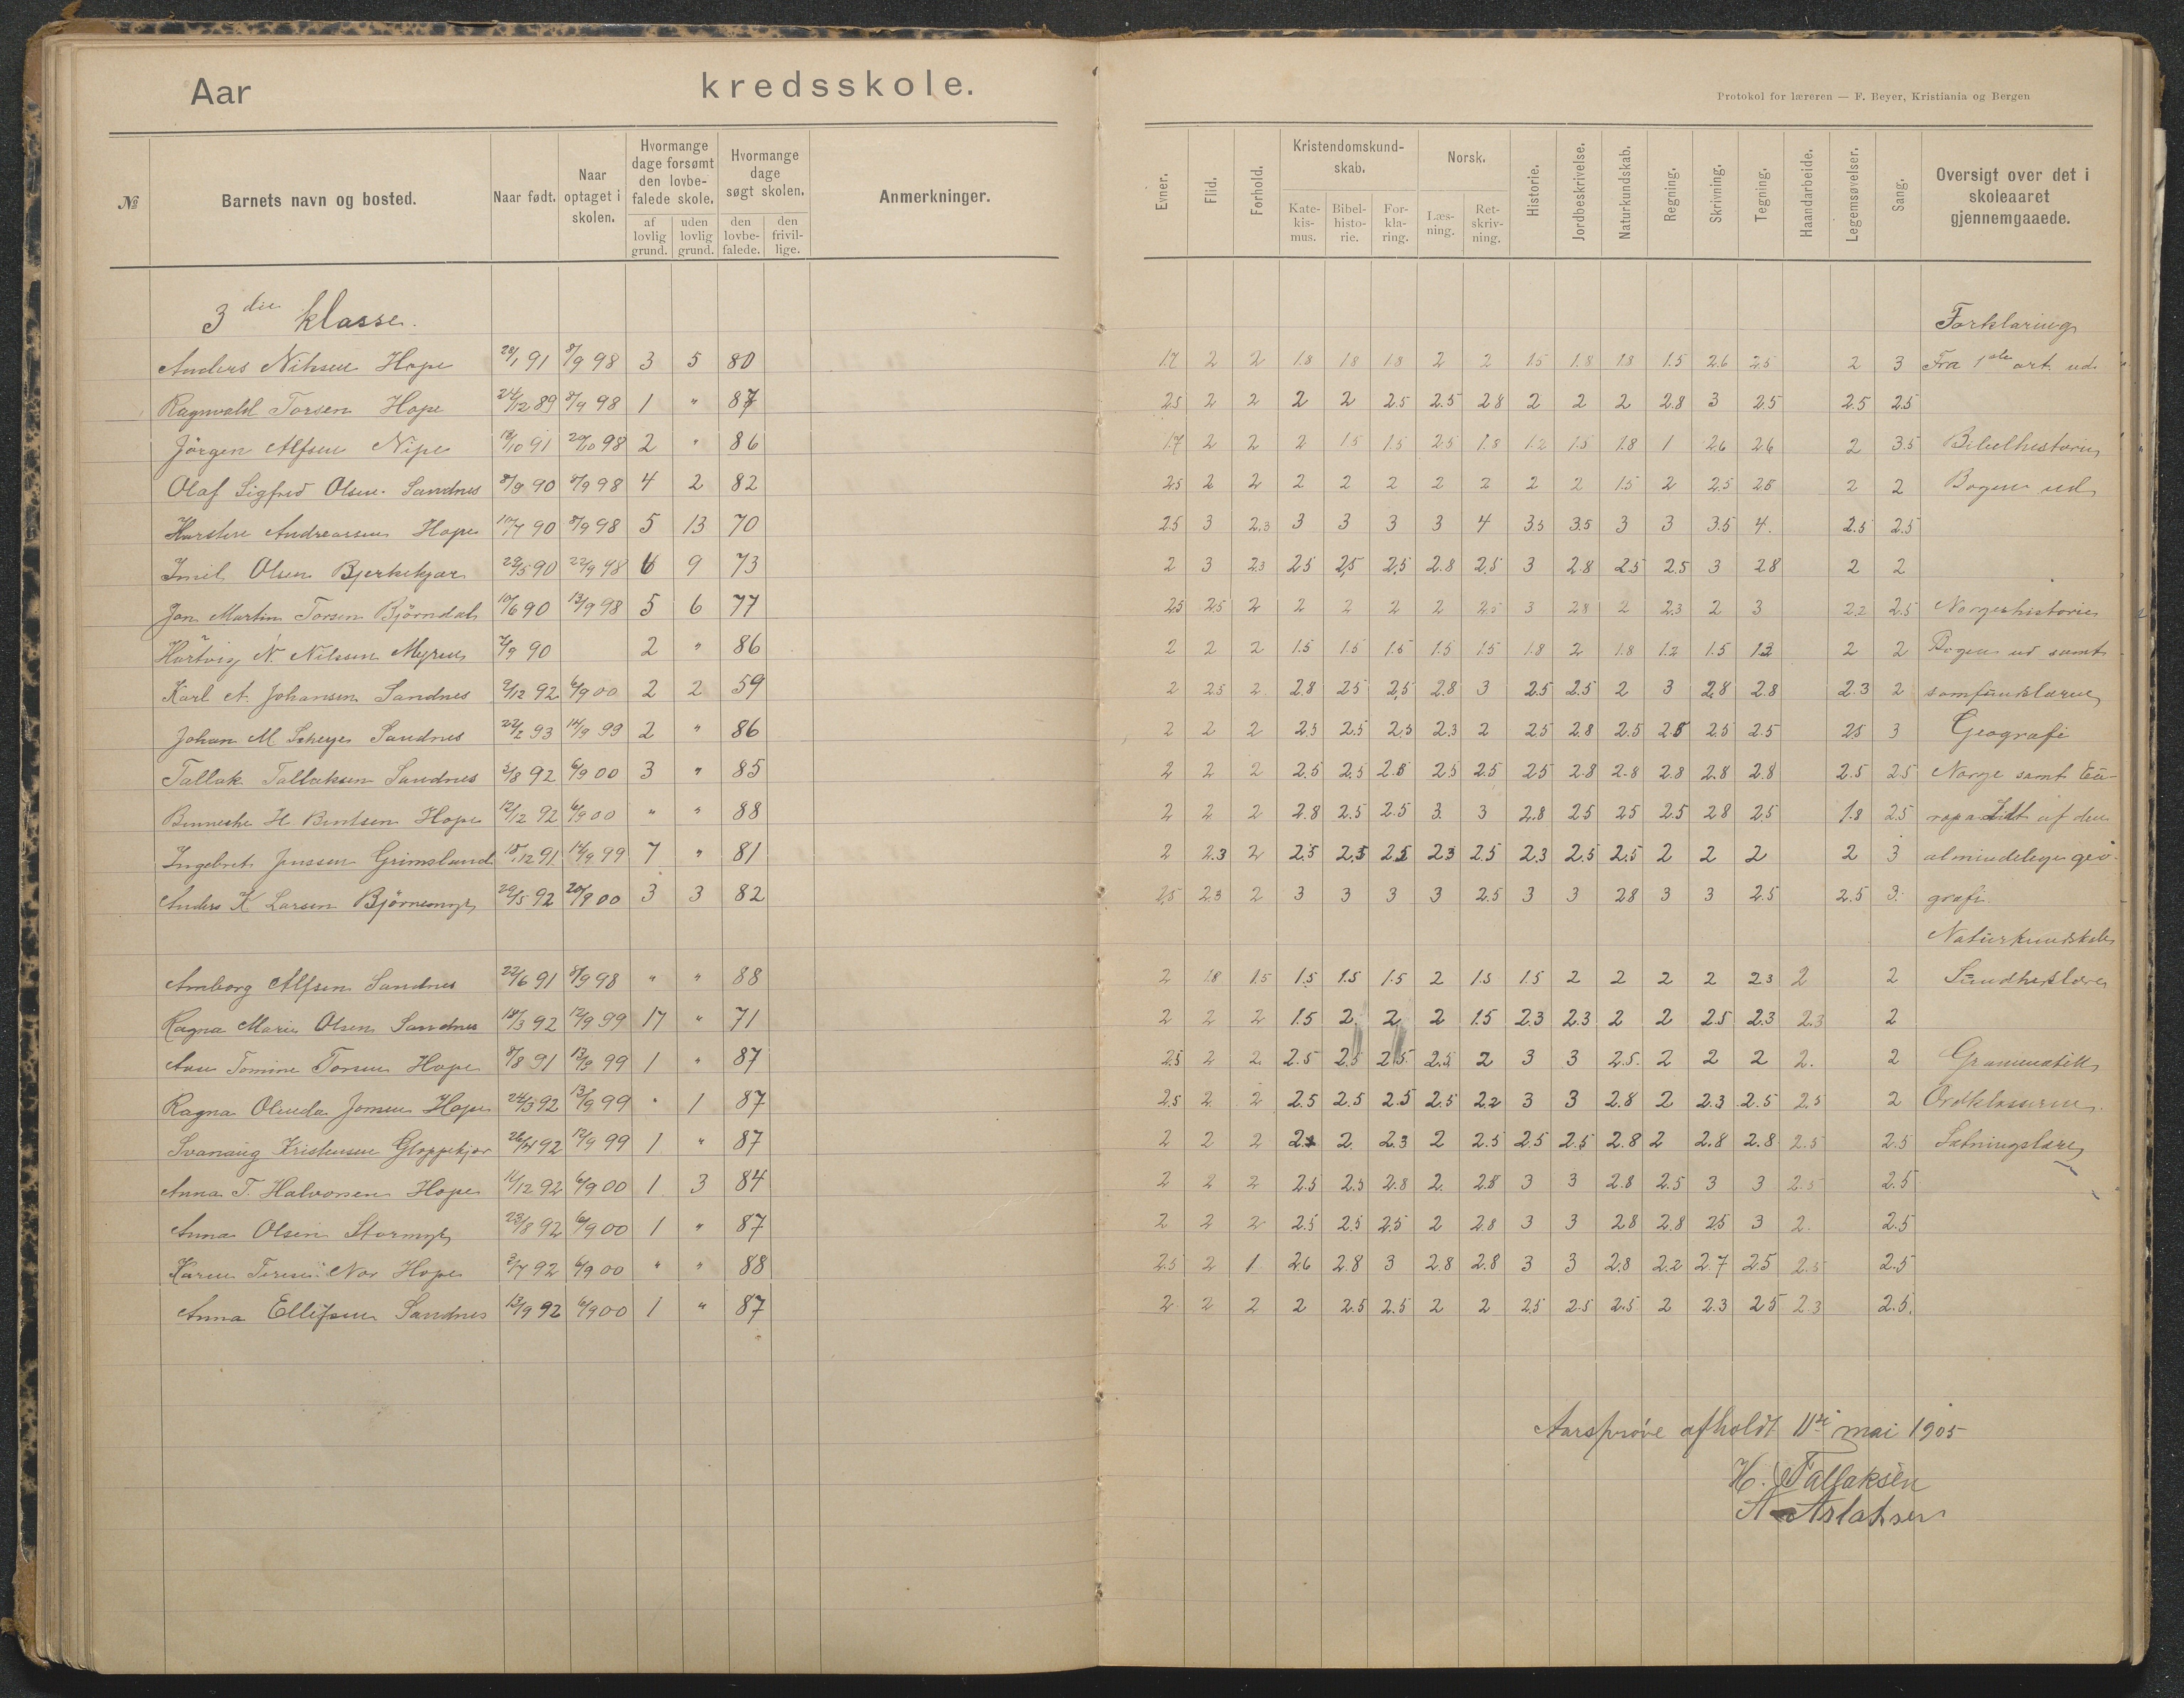 Aar kredsskole.
Protokol for læreren — F. Beyer, Kristiania og Bergen
№ Barnets navn og bosted. Naar født. Naar optaget i skolen. Hvormange dage forsømt den lovbefalede skole. af lovlig grund. uden lovlig grund. Hvormange dage søgt skolen. den lovbefalede. den frivillige. Anmerkninger.
Evner. Flid. Forhold. Kristendomskundskab. Katekismus. Bibelhistorie. Forklaring. Norsk. Læsning. Retskrivning. Historie. Jordbeskrivelse. Naturkundskab. Regning. Skrivning. Tegning. Haandarbeide. Legemsøvelser. Sang. Oversigt over det i skoleaaret gjennemgaaede.
3die klasse. Forklaring
Anders Nilsen Hope 20/1 91 8/9 98 3 5 80 1.7 2 2 1.8 1.8 1.8 2 2 1.5 1.8 1.8 1.5 2.6 2.5 2 3 Fra 1ste art. ud.
Ragnvald Torsen Hope 24/12 89 8/9 98 1 " 87 2.5 2 2 2 2 2.5 2.5 2.8 2 2 2 2.8 3 2.5 2.5 2.5
Jörgen Alfsen Nipe 18/10 91 20/10 98 2 " 86 1.7 2 2 2 1.5 1.5 2.5 1.8 1.2 1.5 1.8 1 2.6 2.6 2 3.5 Bibelhistorie
Olaf Sigfred Olsen Sandnes 8/9 90 8/9 98 4 2 82 2.5 2 2 2 2 2 2 2 2 2 1.5 2 2.5 2.5 2 2 Bogen ud
Andreassen Hope 10/7 90 8/9 98 5 13 70 2.5 3 2.3 3 3 3 3 4 3.5 3.5 3 3 3.5 4. 2.5 2.5
Emil Olsen Bjerkekjær 29/5 90 22/9 98 6 9 73 2 3 2.3 2.5 2.5 2.5 2.8 2.5 3 2.8 2.5 2.5 3 2.8 2 2
Jon Martin Torsen Björndal 10/6 90 13/9 98 5 6 77 2.5 2.5 2 2 2 2 2 2.5 3 2.8 2 2.3 2 3 2.2 2.5 Norgeshistorie
Hartvig N. Nilsen Myren 7/9 90 2 " 86 2 2 2 1.5 1.5 1.5 1.5 1.5 1.8 2 1.8 1.2 1.5 1.3 2 2 Bogen ud samt
Karl A. Johansen Sandnes 9/12 92 6/9 00 2 2 59 2 2.5 2 2.8 2.5 2.5 2.8 3 2.5 2.5 2 3 2.8 2.8 2.3 2 samfundslæren
Johan M Sandnes 22/2 93 14/9 99 2 " 86 2 2 2 2.5 2.5 2.5 2.3 2 2.5 2.8 2.5 2.8 2.5 2.5 2.5 3 Geografi
Tallak Tallaksen Sandnes 3/8 92 6/9 00 3 " 85 2 2 2 2.5 2.5 2.8 2.5 2.5 2.5 2.8 2.8 2.8 2.8 2.8 2.5 2.5 Norge samt Eu-
H. Berntsen Hope 12/12 92 6/9 00 " " 88 2 2 2 2.8 2.5 2.5 3. 3 2.8 2.5 2.5 2.5 2.8 2.5 1.8 2.5 ropa Lidt af den
Ingebret Jenssen Grimsland 18/12 91 14/9 99 7 " 81 2 2.3 2 2.5 2.5 2.5 2.3 2.5 2.3 2.5 2.5 2 2 2 2 3 almindelige geo-
Anders K Larsen Björnemyr 29/5 92 20/9 00 3 3 82 2.5 2.3 2 3 3 3 3 2.5 3 3 2.8 3 3 2.5 2.5 3. grafi
Naturkundskab
Amborg Alfsen Sandnes 22/6 91 8/9 98 " " 88 2 1.8 1.5 1.5 1.5 1.5 2 1.5 1.5 2 2 2 2 2.3 2 2 Sundhedslære
Ragna Marie Olsen Sandnes 18/3 92 12/9 99 17 " 71 2 2 2 1.5 2 2 2 1.5 2.3 2.3 2 2 2.5 2.3 2.3 2
Aase Tomine Torsen Hope 8/8 91 13/9 99 1 " 87 2.5 2 2. 2.5 2.5 2.5 2.5 2 3 3 2.5. 2 2 2 2. 2 Grammatik
Ragna Olenda Jonsen Hope 24/3 92 13/9 99 " 1 87 2.5 2. 2 2.5 2.5 2.5 2.5 2.2 3 3 2.8 2 2.3 2.5 2.5 2 Ordklasserne.
Svanaug Kristensen Gloppekjær 26/4 92 12/9 99 1 " 87 2 2 2 2 2. 2.3 2 2.5 2.5 2.5 2.8 2 2.8 2.8 2.5 2.5 Sætningslære
Anna T. Halvorsen Hope 11/12 92 6/9 00 1 3 84 2 2 2 2.5 2.5 2.8 2. 2.8 3 3 2.8 2.5 3 3 2.5 2.5
Anna Olsen Stormyr 23/8 92 6/9 00 1 " 87 2 2 2 2.5 2.5 2.5 2 2.8 3 3 2.8 2.8 2.5 3 2. 2.5
Karen Terese Nor Hope 3/7 92 6/9 00 " " 88 2.5 2 1 2.6 2.8 3 2.8 2.8 3 3 2.8 2.2 2.7 2.5 2.5 2.5
Anna Ellifsen Sandnes 13/9 92 6/9 00 1 " 87 2 2 2 2 2.5 2.5 2 2 2.5 2.5 2.5 2 2.3 2.5 2.3 2.5.
Aarsprøve afholdt 11te mai 1905
H. Tallaksen
A Aslaksen